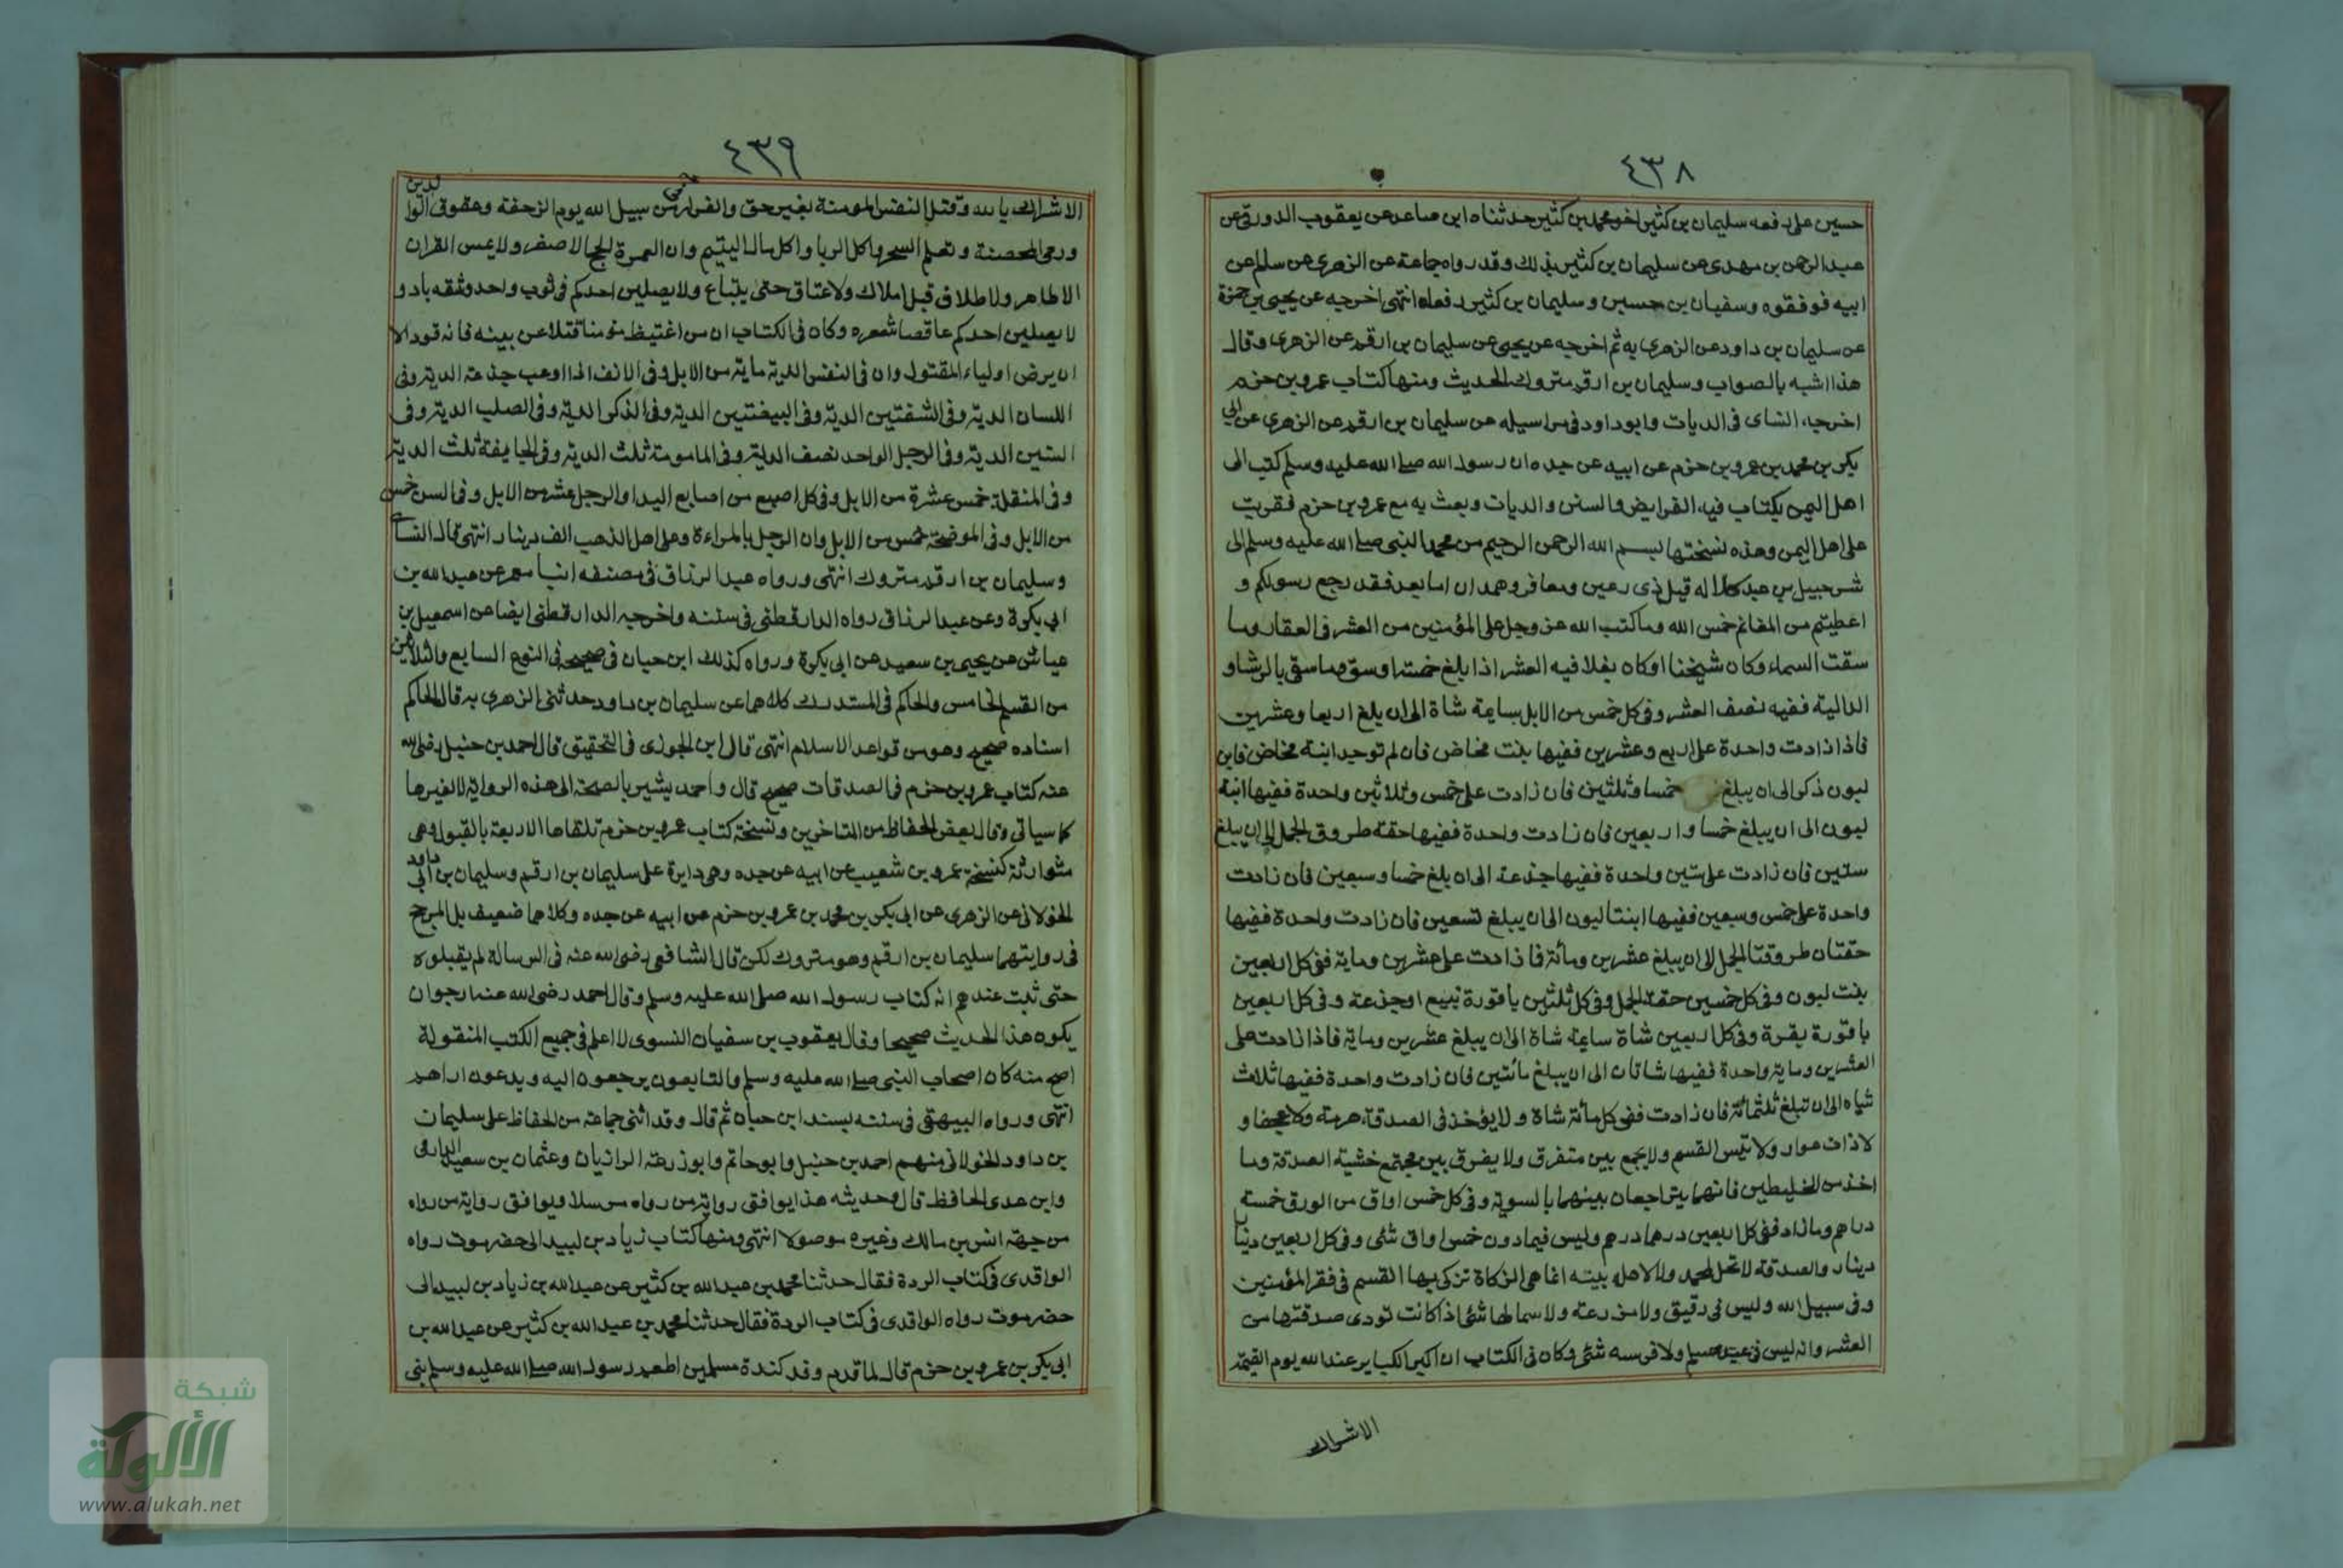 ٤٣٨
حسين على رفعه سليمان بن كثير اخو محمد بن كثير حدثناه ابن صاعد عن يعقوب الدورقى عن
عبد الرحمن بن مهدى عن سليمان بن كثير بذلك وقد رواه جماعة عن الزهرى عن سالم عن
ابيه فوفقوه وسفيان بن حسين وسليمان بن كثير رفعاه انتهى اخرجه عن يحيى بن حمزة
عن سليمان بن داود عن الزهرى به ثم اخرجه عن يحيى عن سليمان بن ارقم عن الزهرى وقال
هذا اشبه بالصواب وسليمان بن ارقم متروك الحديث ومنها كتاب عمرو بن حزم
اخرجه النساى فى الديات وابو داود فى مراسيله عن سليمان بن ارقم عن الزهرى عن ابى
بكر بن محمد بن عمرو بن حزم عن ابيه عن جده ان رسول الله صلى الله عليه وسلم كتب الى
اهل اليمن بكتاب فيه الفرايض والسنن والديات وبعث به مع عمرو بن حزم فقريت
على اهل اليمن وهذه نسختها بسم الله الرحمن الرحيم من محمد النبى صلى الله عليه وسلم الى
شرحبيل بن عبد كلاله قيل ذى رعين ومعافر وهمدان اما بعد فقد رجع رسولكم و
اعطيتم من المغانم خمس الله وما كتب الله عز وجل على المؤمنين من العشر فى العقار وما
سقت السماء وكان شيخنا او كان بغلا فيه العشر اذا بلغ خمسة اوسق وما سقى بالرشا و
الدالية ففيه نصف العشر وفى كل خمس من الابل سايمة شاة الى ان يلغ اربعا وعشرين
فاذا زادت واحدة على اربع وعشرين ففيها بنت مخاض فان لم توجد ابنة مخاض فابن
لبون ذكر الى ان يبلغ خمسا وثلثين فان زادت على خمس وثلاثين واحدة ففيها ابنة
لبون الى ان يبلغ خمسا واربعين فان زادت واحدة ففيها حقة طروق الجمل الى ان يبلغ
ستين فان زادت على ستين واحدة ففيها جذعة الى ان بلغ خمسا وسبعين فان زادت
واحدة على خمس وسبعين ففيها ابنتا لبون الى ان يبلغ تسعين فان زادت واحدة ففيها
حقتان طروقتا الجمل الى ان يبلغ عشرين ومائة فا زادت على عشرين وماية ففى كل اربعين
بنت لبون وفى كل خمسين حقة الجمل وفى كل ثلثين باقورة تبيع او جذعة وفى كل اربعين
باقورة بقرة وفى كل اربعين شاة سايمة شاة الى ان يبلغ عشرين وماية فاذا زادت على
العشرين وماية واحدة ففيها شاتان الى ان يبلغ مائتين فان زادت واحدة ففيها ثلاث
شياه الى ان تبلغ ثلثمائة فان زادت ففى كل مائة شاة ولا يؤخذ فى الصدقة هرمة ولا عجفا و
لا ذات عوار ولا تيس القسم ولا يجمع بين متفرق ولا يفرق بين مجتمع خشية الصدقة وما
اخذ من الخليطين فانهما يتراجعان بينهما بالسوية وفى كل خمس اواق من الورق خمسة
دراهم وما زاد ففى كل اربعين درهما درهم وليس فيما دون خمس اواق شئى وفى كل اربعين دينارا
دينار والصدقة لا تحل لمحمد ولا لاهل بيته انما هى الزكاة تزكى بها القسم فى فقر المؤمنين
وفى سبيل الله وليس فى رقيق ولا مزرعة ولا سمالها شئ اذا كانت تودى صدقتها من
العشر وانه ليس فى عبد مسلم ولا فرسه شئى وكان فى الكتاب ان اكبر الكباير عند الله يوم القيمة
الاشراك
٤٣٩
الاشراك بالله وقتل النفس المومنة بغير حق والفرار من سبيل الله يوم الزحفة وعقوق الوالدين
ورمى المحصنة وتعلم السحر واكل الربا واكل مال اليتيم وان العمرة الحج الاصغر ولا يمس القران
الا طاهر ولا طلاق قبل املاك ولا عتاق حتى يبتاع ولا يصلين احدكم فى ثوب واحد وشقه باد و
لا يصلين احدكم عاقصا شعره وكان فى الكتاب ان من اغتبط مومنا قتلا عن بينه فانه قود الا
ان يرض اولياء المقتول وان فى النفس الدية ماية من الابل وفى الانف اذا اوعب جذعة الدية وفى
اللسان الدية وفى الشفتين الدية وفى البيضتين الدية وفى الذكر الدية وفى الصلب الدية وفى
الستين الدية وفى الرجل الواحد نصف الدية وفى المامومة ثلث الدية وفى الجايفة ثلث الدية
وفى المنقلة خمس عشرة من الابل وفى كل اصبع من اصابع اليد او الرجل عشر من الابل وفى السن خمس
من الابل وفى الموضحة خمس من الابل وان الرجل بالمراءة وعلى اهل الذهب الف دينار انتهى قال النساى
وسليمان بن ارقم متروك انتهى ورواه عبد الرزاق فى مصنفه انبا معمر عن عبد الله بن
ابى بكرة وعن عبد الرزاق رواه الدارقطنى فى سننه واخرجه الدارقطنى ايضا عن اسمعيل بن
عياش عن يحيى بن سعيد عن ابى بكرة ورواه كذلك ابن حبان فى صحيحه فى النوع السابع والثلاثين
من القسم الخامس والحاكم فى المستدرك كلاهما عن سليمان بن داود حدثنى الزهرى به قال الحاكم
اسناده صحيح وهو من قواعد الاسلام انتهى قال ابن الجوزى فى التحقيق قال احمد بن حنبل رضى الله
عنه كتاب عمرو بن حزم فى الصدقات صحيح قال واحمد يشير بالصحة الى هذه الرواية لا لغيرها
كما سياتى وقال بعض الحفاظ من المتاخرين ونسخة كتاب عمرو بن حزم تلقاها الاربعة بالقبول وهى
متوارثة كنسخة عمرو بن شعيب عن ابيه عن جده وهى دايرة على سليمان بن ارقم وسليمان بن ابى داود
الخولانى عن الزهرى عن ابى بكر بن محمد بن عمرو بن حزم عن ابيه عن جده وكلاهما ضعيف بل المرجح
فى روايتهما سليمان بن ارقم وهو متروك لكن قال الشافعى رضى الله عنه فى الرسالة لم يقبلوه
حتى ثبت عندهم انه كتاب رسول الله صلى الله عليه وسلم وقال احمد رضى الله عنه ارجوان
يكون هذا الحديث صحيحا وقال يعقوب بن سفيان النسوى لا اعلم فى جميع الكتب المنقولة
اصح منه كان اصحاب النبى صلى الله عليه وسلم والتابعون يرجعون اليه ويدعون اراهم
انتهى ورواه البيهقى فى سننه بسند ابن حبان ثم قال وقد اثنى جماعة من الحفاظ على سليمان
بن داود الخولانى منهم احمد بن حنبل وابو حاتم وابو زرعة الرازيان وعثمان بن سعيد الدارمى
وابن عدى الحافظ قال وحديثه هذا يوافق رواية من رواه مرسلا ويوافق رواية من رواه
من جهة انس بن مالك وغيره موصولا انتهى ومنها كتاب زياد بن لبيد الى حضرموت رواه
الواقدى فى كتاب الردة فقال حدثنا محمد بن عبد الله بن كثير عن عبد الله بن زياد بن لبيد الى
حضرموت رواه الواقدى فى كتاب الردة فقال حدثنا محمد بن عبد الله بن كثير عن عبد الله بن
ابى بكر بن عمرو بن حزم قال لما قدم وفد كندة مسلمين اطعم رسول الله صلى الله عليه وسلم بنى
شبكة
الألوكة
www.alukah.net